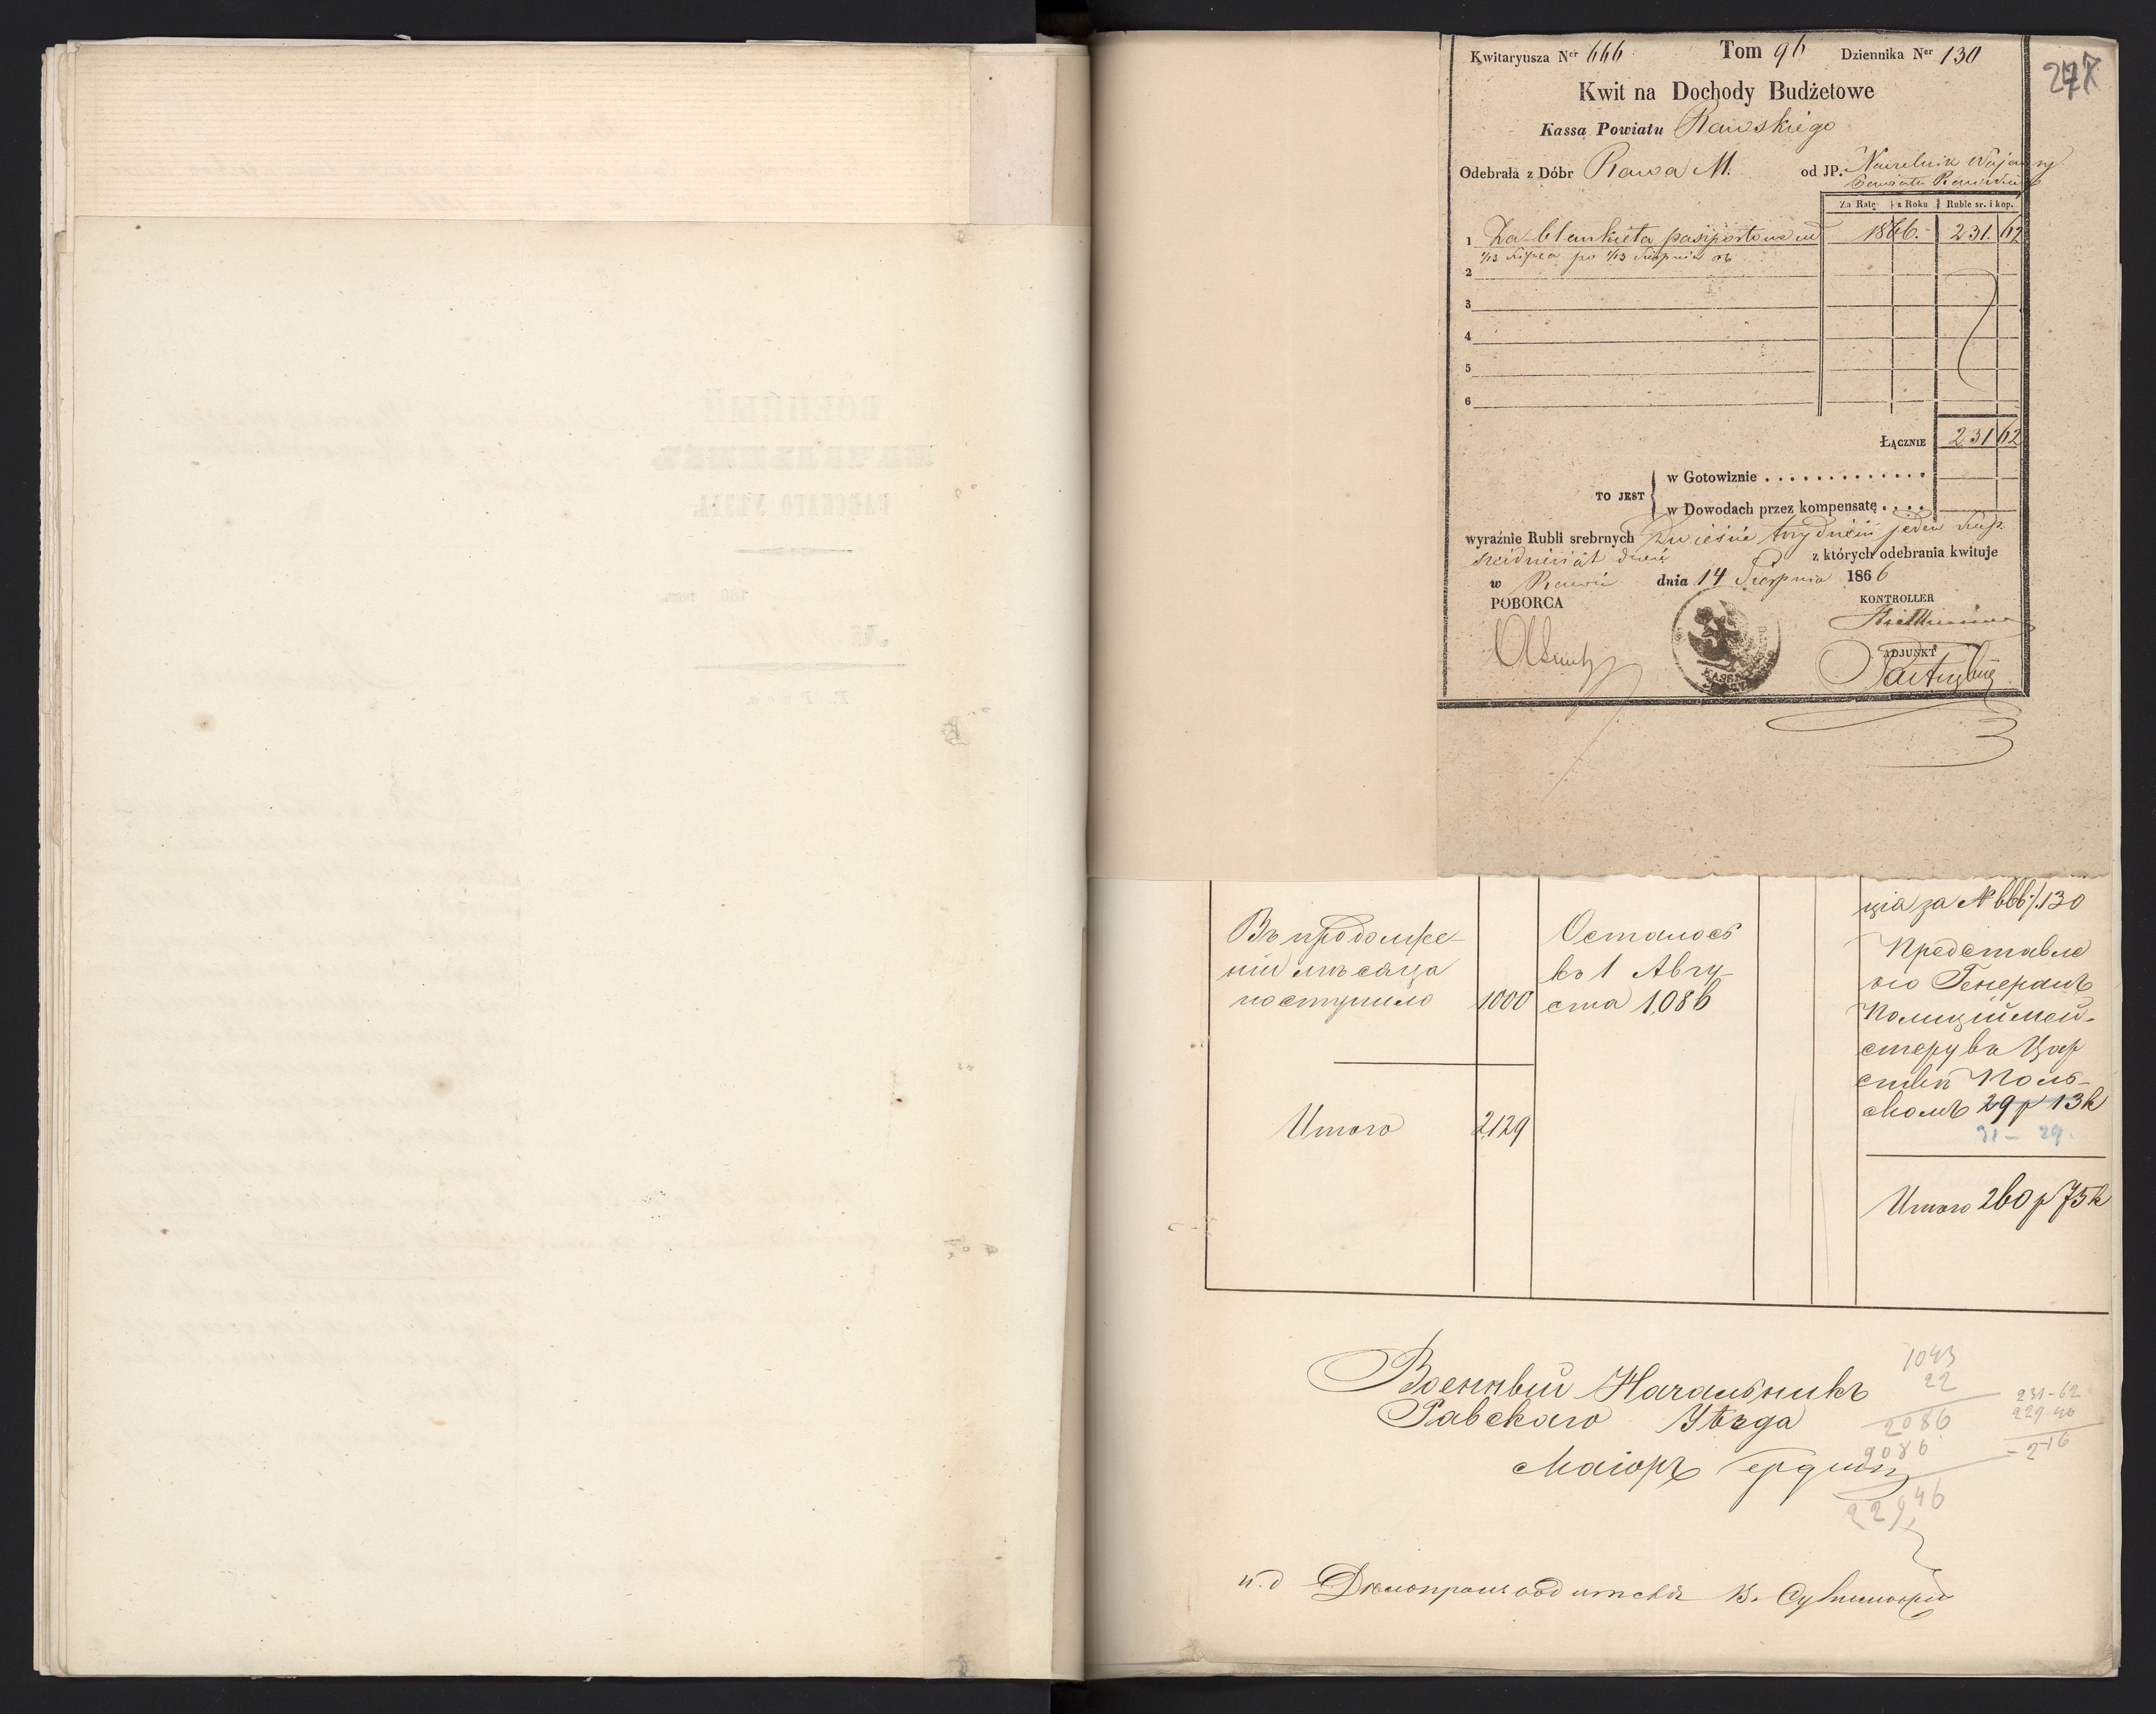 Kwitaryusza Ner 666 Tom 96 Dziennika Ner 130
277
Kwit na Dochody Budżetowe
Kassa Powiatu Rawskiego
Odebrała z Dóbr Rawa M. od JP. Naczelnik Wojenny
Powiatu Rawskiego
Za Ratę z Roku Ruble sr. i kop.
1 Za blankieta pasportowe od 1866. 231. 62
1/13 Lipca po 1/13 Sierpnia rb
2
3
4
5
6
Łącznie 231 62
w Gotowiznie
TO JEST
w Dowodach przez kompensatę
wyraźnie Rubli srebrnych Dwieście trzydzieści jeden kop.
sześćdziesiąt dwie z których odebrania kwituje
w Rawie dnia 14 Sierpnia 1866
POBORCA KONTROLLER
ADJUNKT
KASSA
ція за № 666/130
Въ продолже-
ніи мѣсяца
поступило 1000
Итого 2129
Осталось
къ 1 Авгу-
ста 1,086
Представле
но Генералъ
Полиціймей-
стеру въ Цар
ствѣ Поль-
скомъ 29 р 13 к
31 - 29.
Итого 260 р 75 к
Военный Начальникъ
Равскаго Уѣзда
Маіоръ
1043
22
2086
2086
229,46
231-62
229-46
- 2-16
и. д Дѣлопроизводителя В.